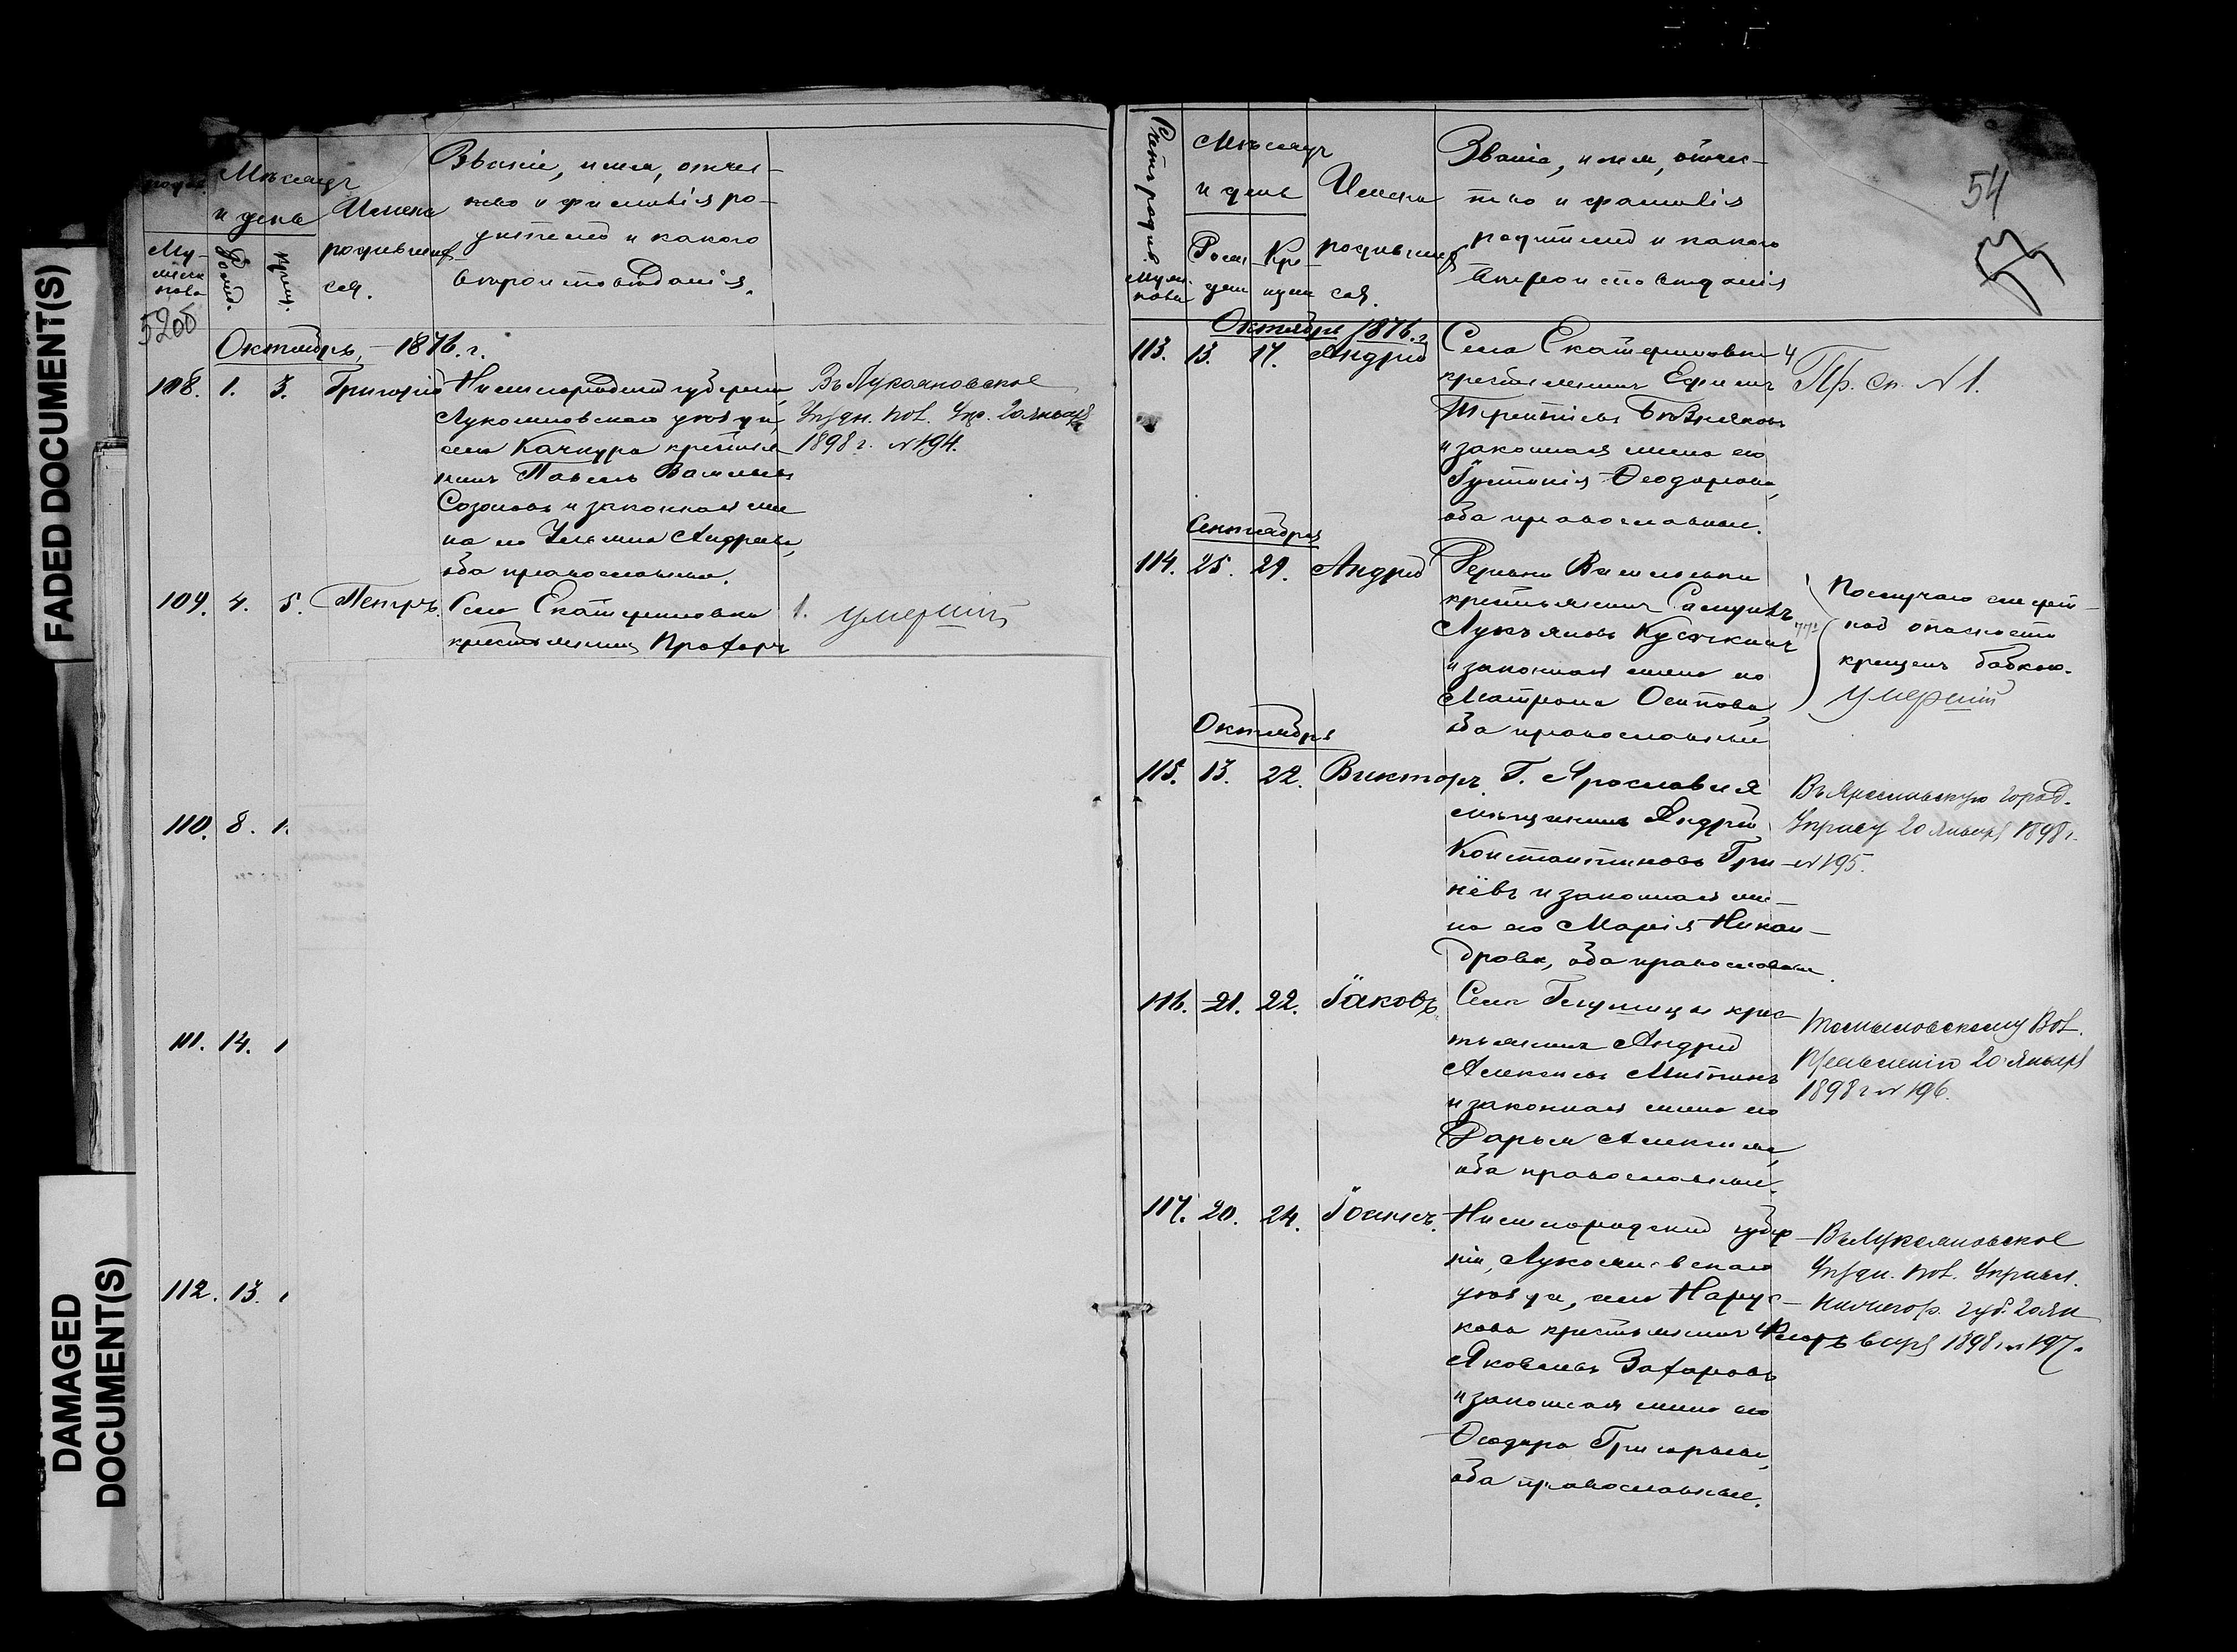 FADED DOCUMENT(S)
DAMAGED
DOCUMENT(S)
Мѣсяцъ
и день
Му-
жеска
пола
Рожд.
Крещ.
Имена
родивших
ся.
Званіе, имя, отчес-
тво и фамилія ро-
дителей и какого
вѣроисповѣданія.
520б
Октябрь, - 1876. г.
108. 1. 3. Григорій
Нижегородской губерніи,
Лукояновскаго уѣзда,
села Качкура крестья
нинъ Павелъ Васильевъ
Созоновъ и законная же
на его Андреева,
оба православные.
Въ Лукояновское
Уѣздн. пол. Упр. 20 января
1898 г. № 194.
109. 4. 5. Петръ.
Села Екатериновки
крестьянинъ Прохоръ
1. умершій
110. 8. 1
111. 14. 1
112. 13. 1
54
53
Счетъ родив.
Мужес
пола
Мѣсяцъ
и день
Рож
ден
Кре
щен
Имена
родивших
ся.
Званіе, имя, отчес-
тво и фамилія
родителей и какого
вѣроисповѣданія
Октября 1876. г.
113. 13. 17. Андрей
Села Екатериновки
крестьянинъ Ефимъ
Терентіевъ
и законная жена его
Іустинія Ѳеодорова,
оба православные.
4
Пр. сп. № 1.
Сентября
114. 25. 29. Андрей
Деревни Васильевки
крестьянинъ
Лукьяновъ
и законная жена его
Матрона Осипова,
оба православные
По случаю смерт-
ной опасности
крещенъ бабкою.
умершій
Октября
115. 13. 22. Викторъ.
Г. Ярославля
мѣщанинъ Андрей
Константиновъ Гри
нёвъ и законная же-
на его Марія Никан-
дрова, оба православные.
Въ Ярославскую город.
Управу 20 января 1898 г.
№ 195.
116. 21. 22. Іаковъ
Села крес-
тьянинъ Андрей
Алексѣевъ Митинъ
и законная жена его
Дарья Алексѣева,
оба православные.
Томыловскому Вол.
Правленію 20 января
1898 г. № 196.
117. 20. 24. Іоаннъ.
Нижегородской губер
ніи, Лукояновскаго
уѣзда, села Нарус-
кова крестьянинъ Ѳеодоръ
Яковлевъ Захаровъ
и законная жена его
Ѳеодора Григорьева,
оба православные.
Въ Лукояновское
Уѣздн. пол. Управл.
Нижегор. губ. 20 ян
варя 1898 г. № 197.